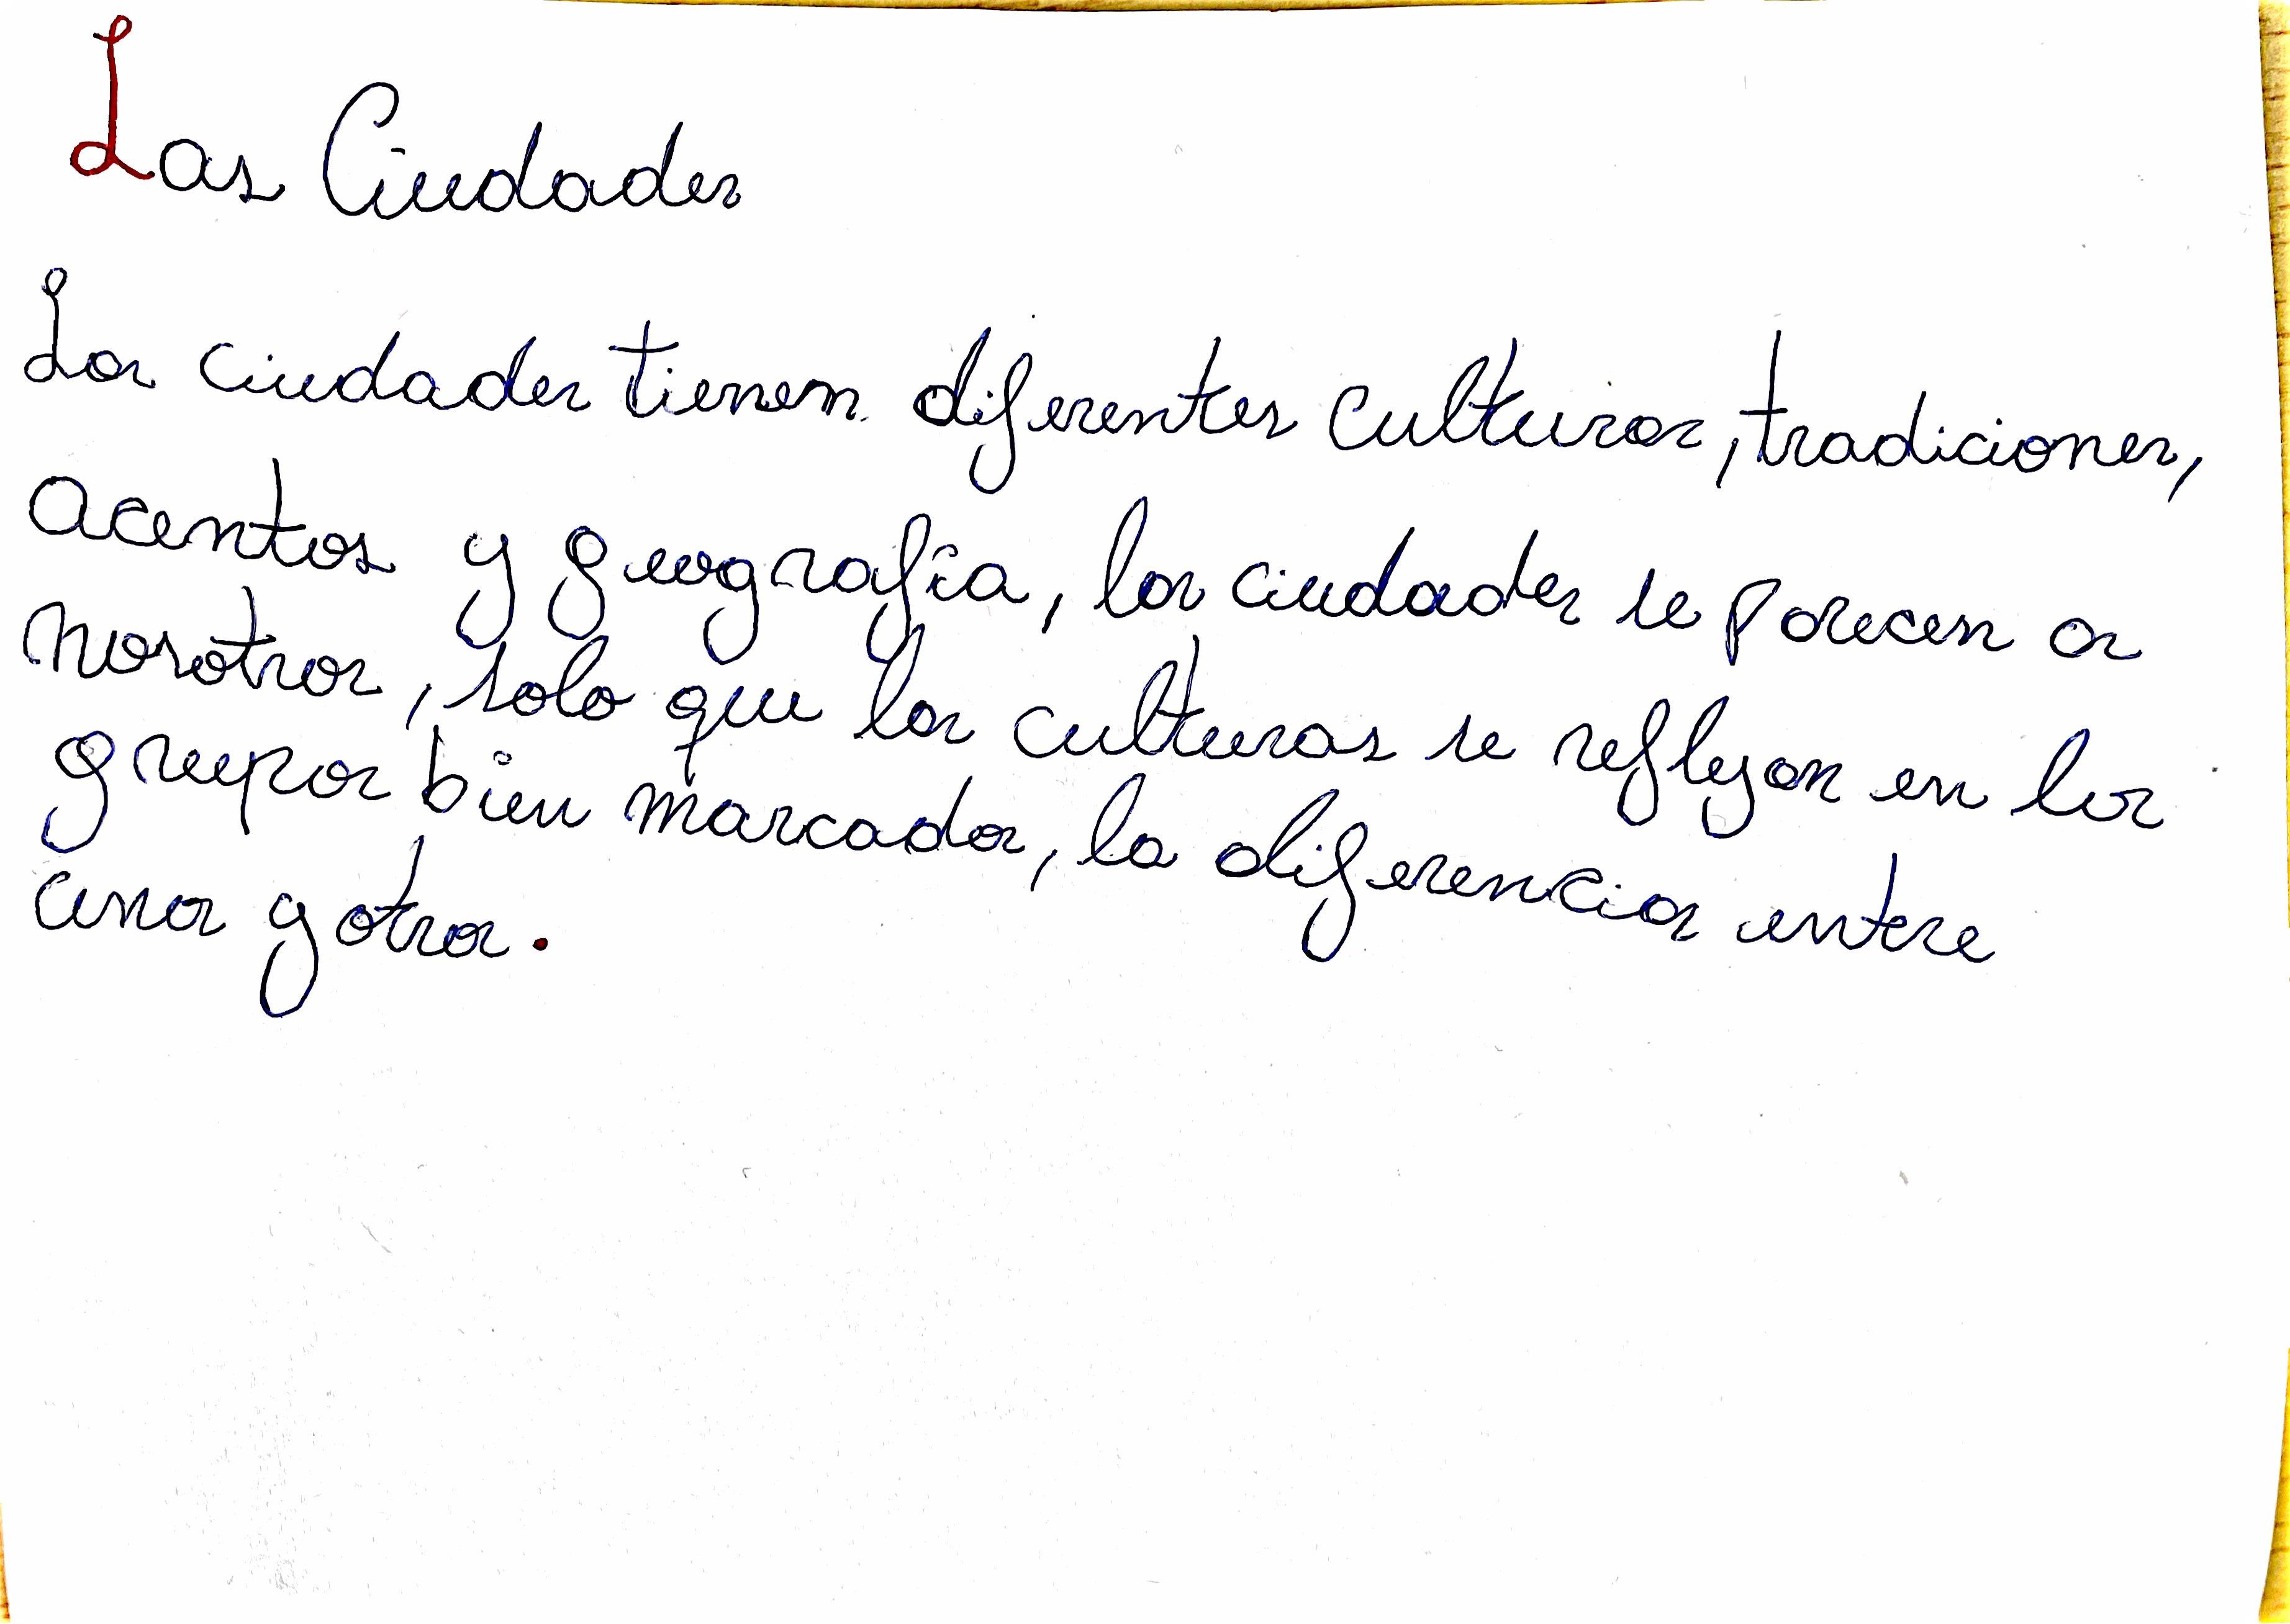 Las Ciudades
Las ciudades tienem diferentes culturas, tradiciones,
acentos y geografía, las ciudades se parecen a
nosotros, solo que las culturas se reflejan en los
grupos bien marcados, la diferencias entere
unos y otros.